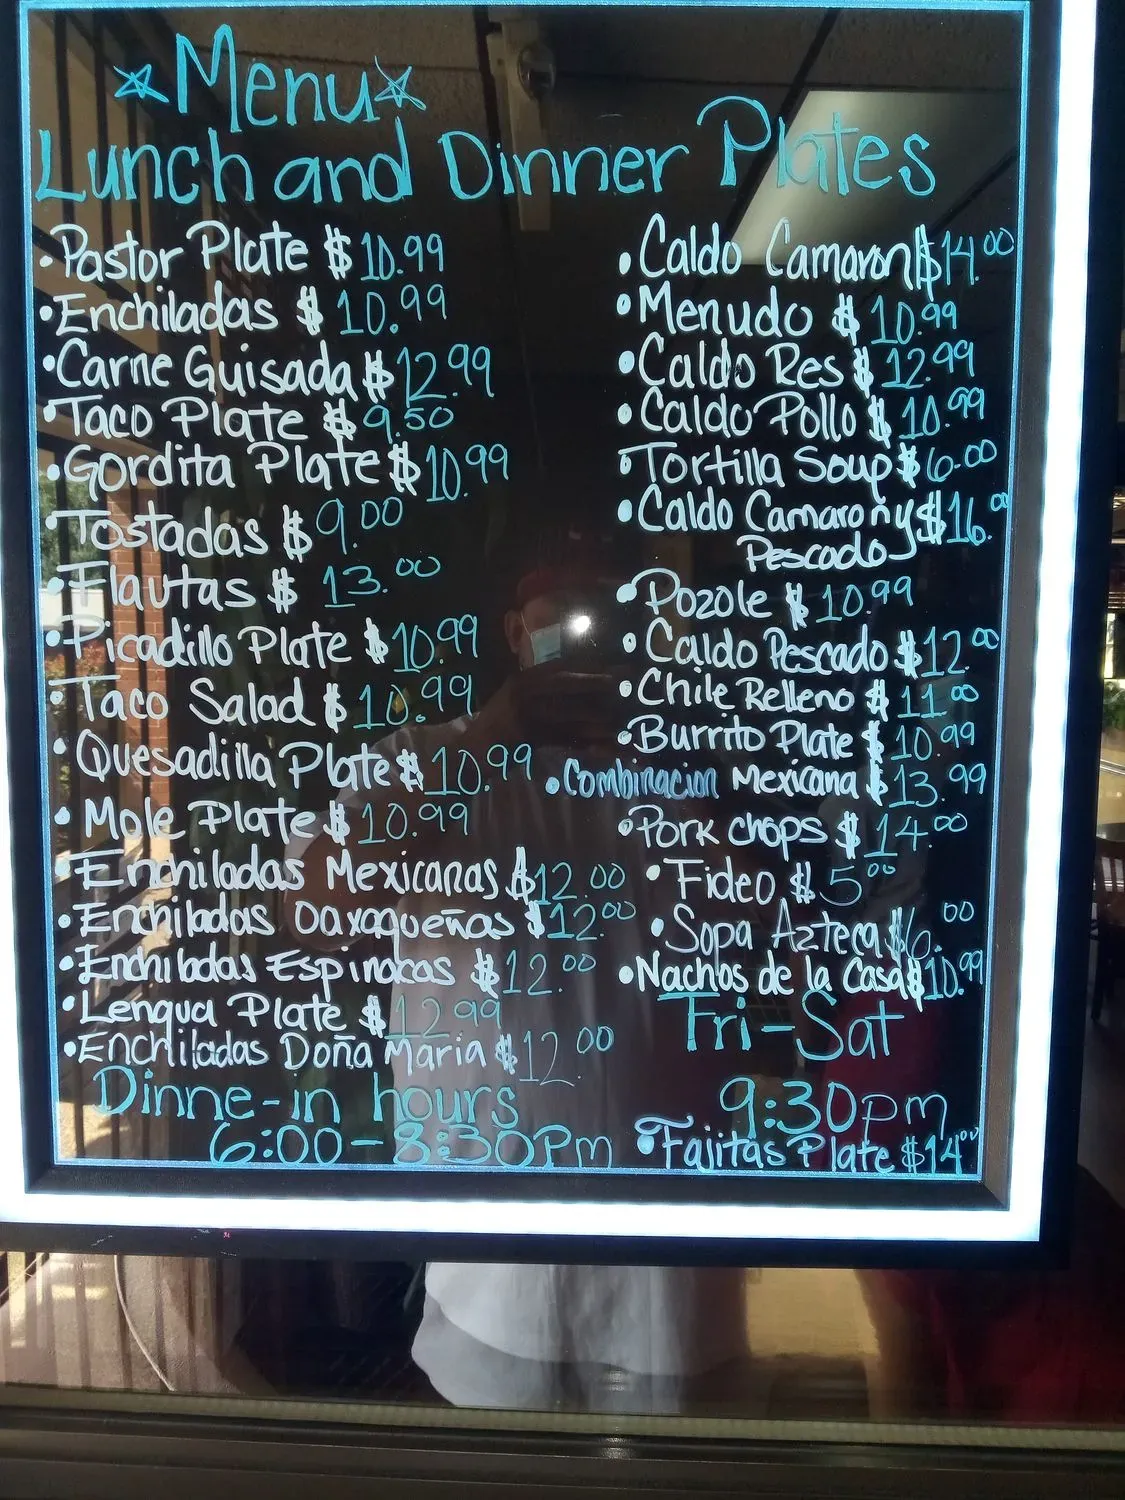 Menu
Lunch and Dinner Plates
Pastor Plate $ 10.99
Enchiladas $ 10.99
Carne Guisada $ 12.99
Taco Plate $ 9.50
Gordita Plate $ 10.99
Tostadas $ 9.00
Flautas $ 13.00
Picadillo Plate $ 10.99
Taco Salad $ 10.99
Quesadilla Plate $ 10.99
Mole Plate $ 10.99
Enchiladas Mexicanas $ 12.00
Enchiladas Oaxaqueñas $ 12.00
Enchiladas Espinacas $ 12.00
Lengua Plate $ 12.99
Enchiladas Doña Maria $ 12.00
Dinne-in hours
6:00-8:30Pm
Caldo Camaron $ 14.00
Menudo $ 10.99
Caldo Res $ 12.99
Caldo Pollo $ 10.99
Tortilla Soup $ 6.00
Caldo Camaron y $ 16.00
Pescado
Pozole $ 10.99
Caldo Pescado $ 12.00
Chile Relleno $ 11.00
Burrito Plate $ 10.99
Combinacion Mexicana $ 13.99
Pork chops $ 14.00
Fideo $ 5.00
Sopa Azteca $ 6.00
Nachos de la Casa $ 10.99
Fri-Sat
9:30pm
Fajitas Plate $ 14.00